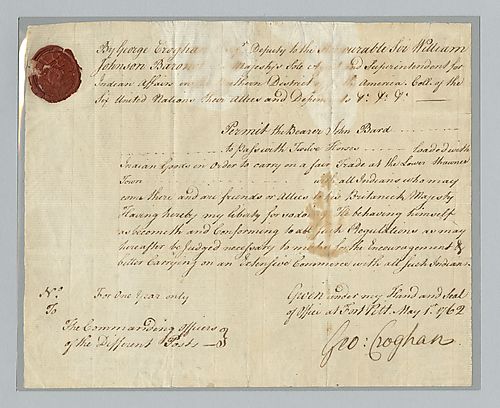 By George Croghan Esqr. Deputy to the Honourable Sir William
Johnson Baronet Majesty's Sole and Superintendent for
Indian Affairs in thern District America. Coll. of the
Six United Nations their Allies and Dependants &: &: &:
Permit the Bearer John Bard
to pass with Twelve Horses loaded with
Indian Goods in Order to carry on a fair Trade at the Lower Shawnee
Town with all Indians who may
come there and are friends or Allies to his Britanick Majesty
Having hereby my liberty for so doing He behaving himself
as becometh and Conforming to all such Regulations as may
hereafter be Judged necessary to make for the Encouragement &
better Carrying on an Extensive Commerce with all such Indians.
No. For One Year only
Given under my Hand and Seal
of Office at Fort Pitt May 1st. 1762
To
The Commanding Officers
of the Different Posts
Geo: Croghan